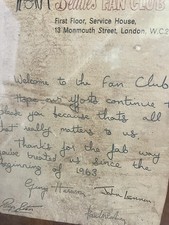 Beatles FAN CLUB
First Floor, Service House,
13 Monmouth Street, London, W.C.2
Welcome to the Fan Club
Hope our efforts continue to
please you because that's all
that really matters to us.
Thanks for the fab way
you've treated us since the
beginning of 1963
George Harrison John Lennon